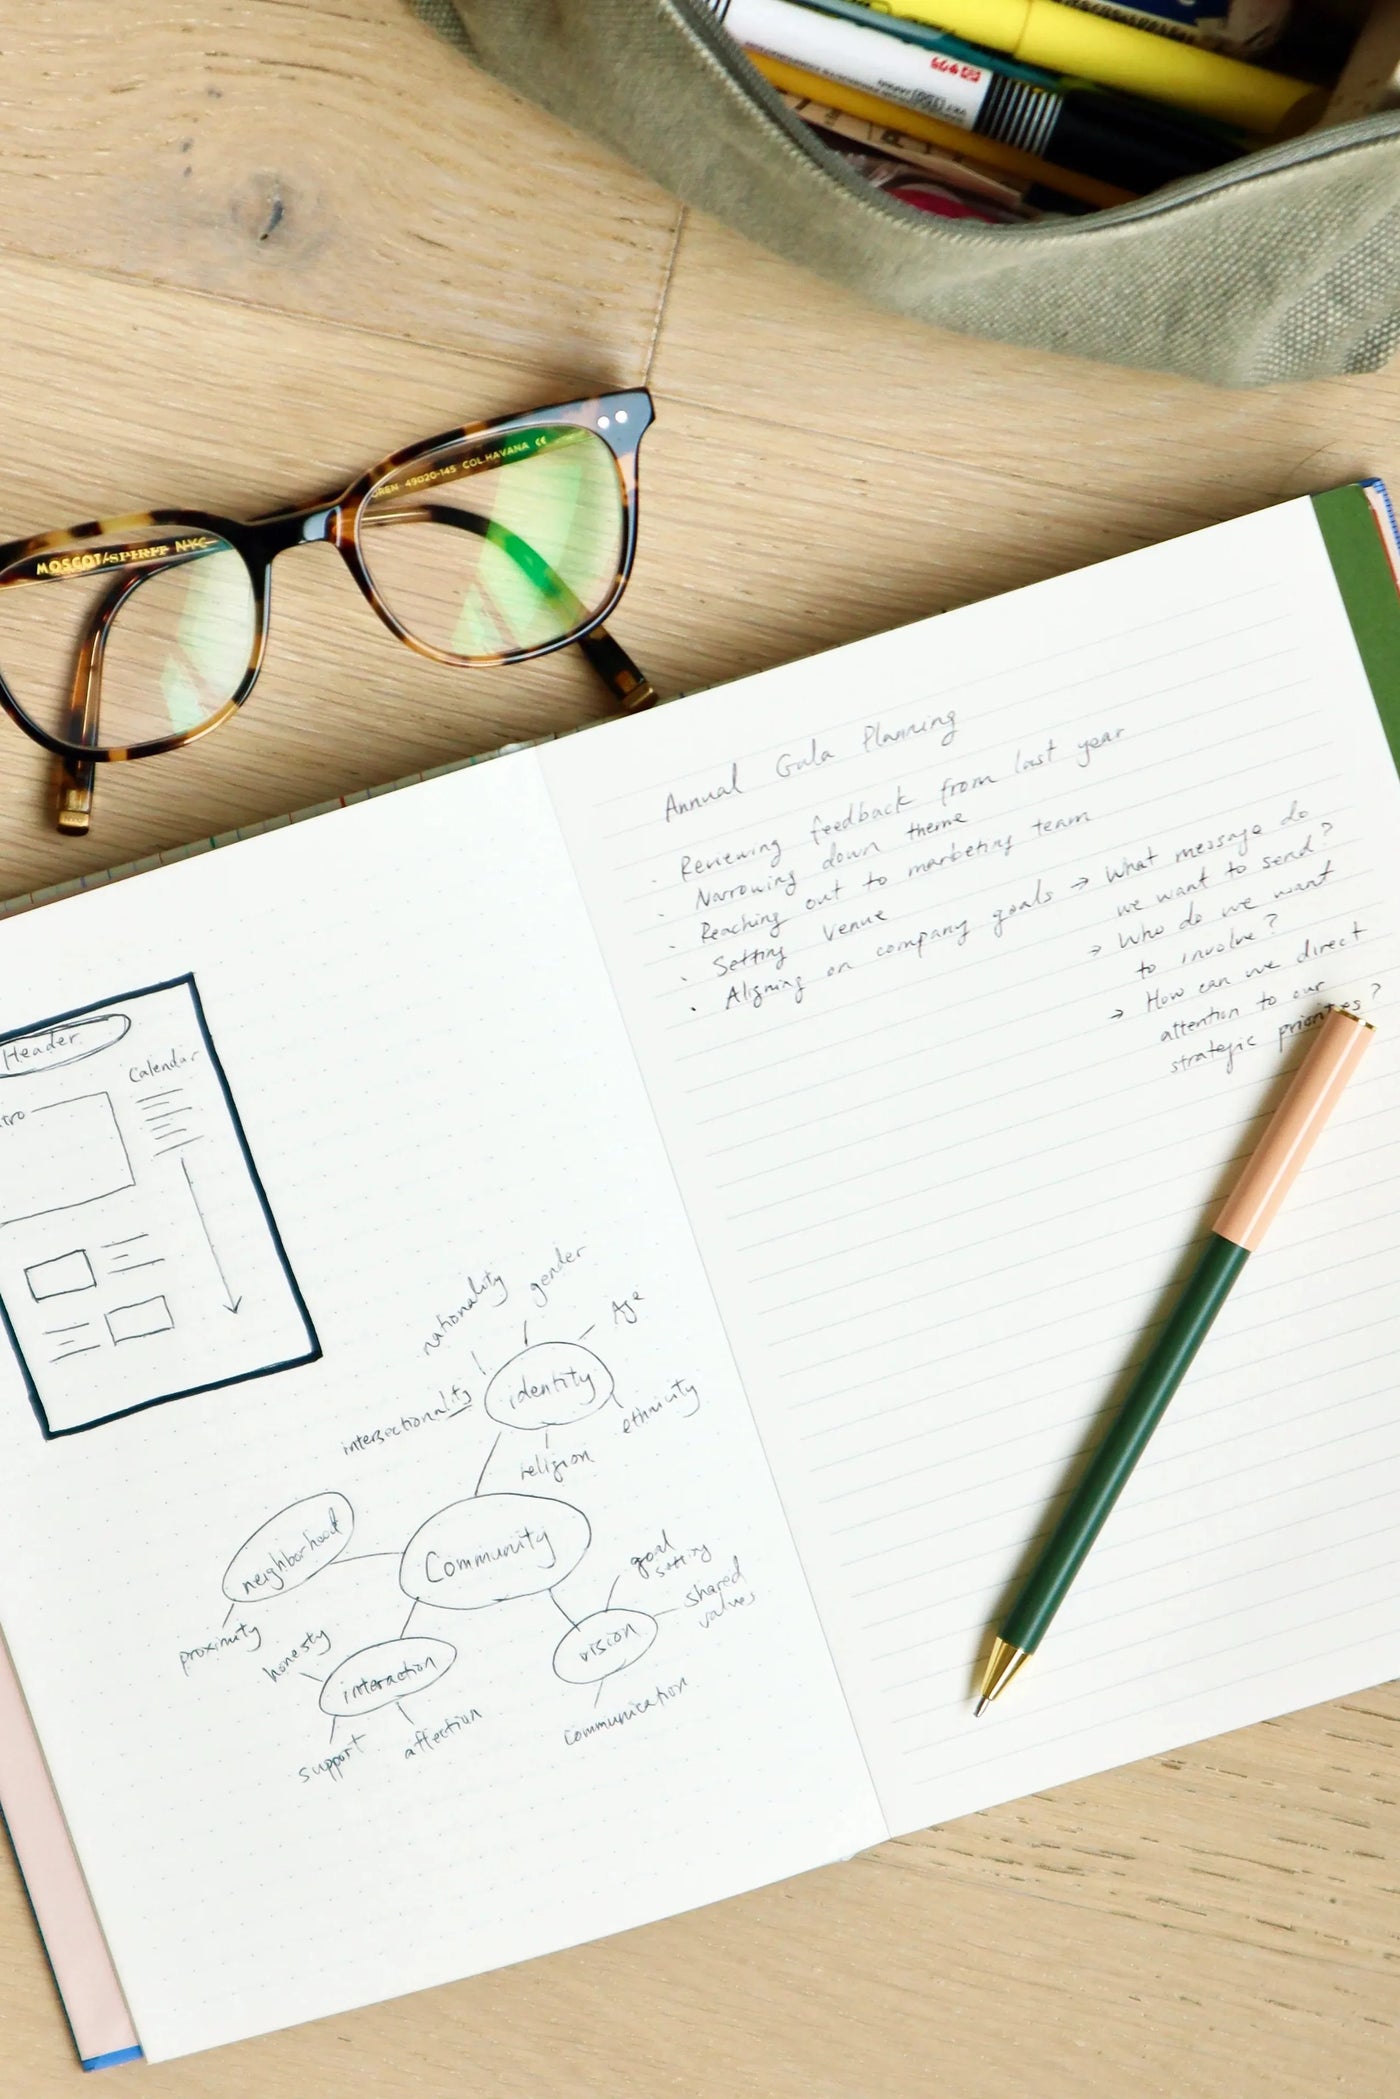 MOSCOT/SPIRIT NYC
49□20-145 COL.HAVANA CE
Header
Calendar
nationality
gender
Age
identity
intersectionality
ethnicity
religion
neighborhood
Community
proximity
honesty
interaction
support
affection
goal
setting
shared
values
vision
communication
Annual Gala Planning
· Reviewing feedback from last year
· Narrowing down theme
· Reaching out to marketing team
· Setting venue
· Aligning on company goals → What message do
we want to send?
→ Who do we want
to involve?
→ How can we direct
attention to our
strategic priorities?